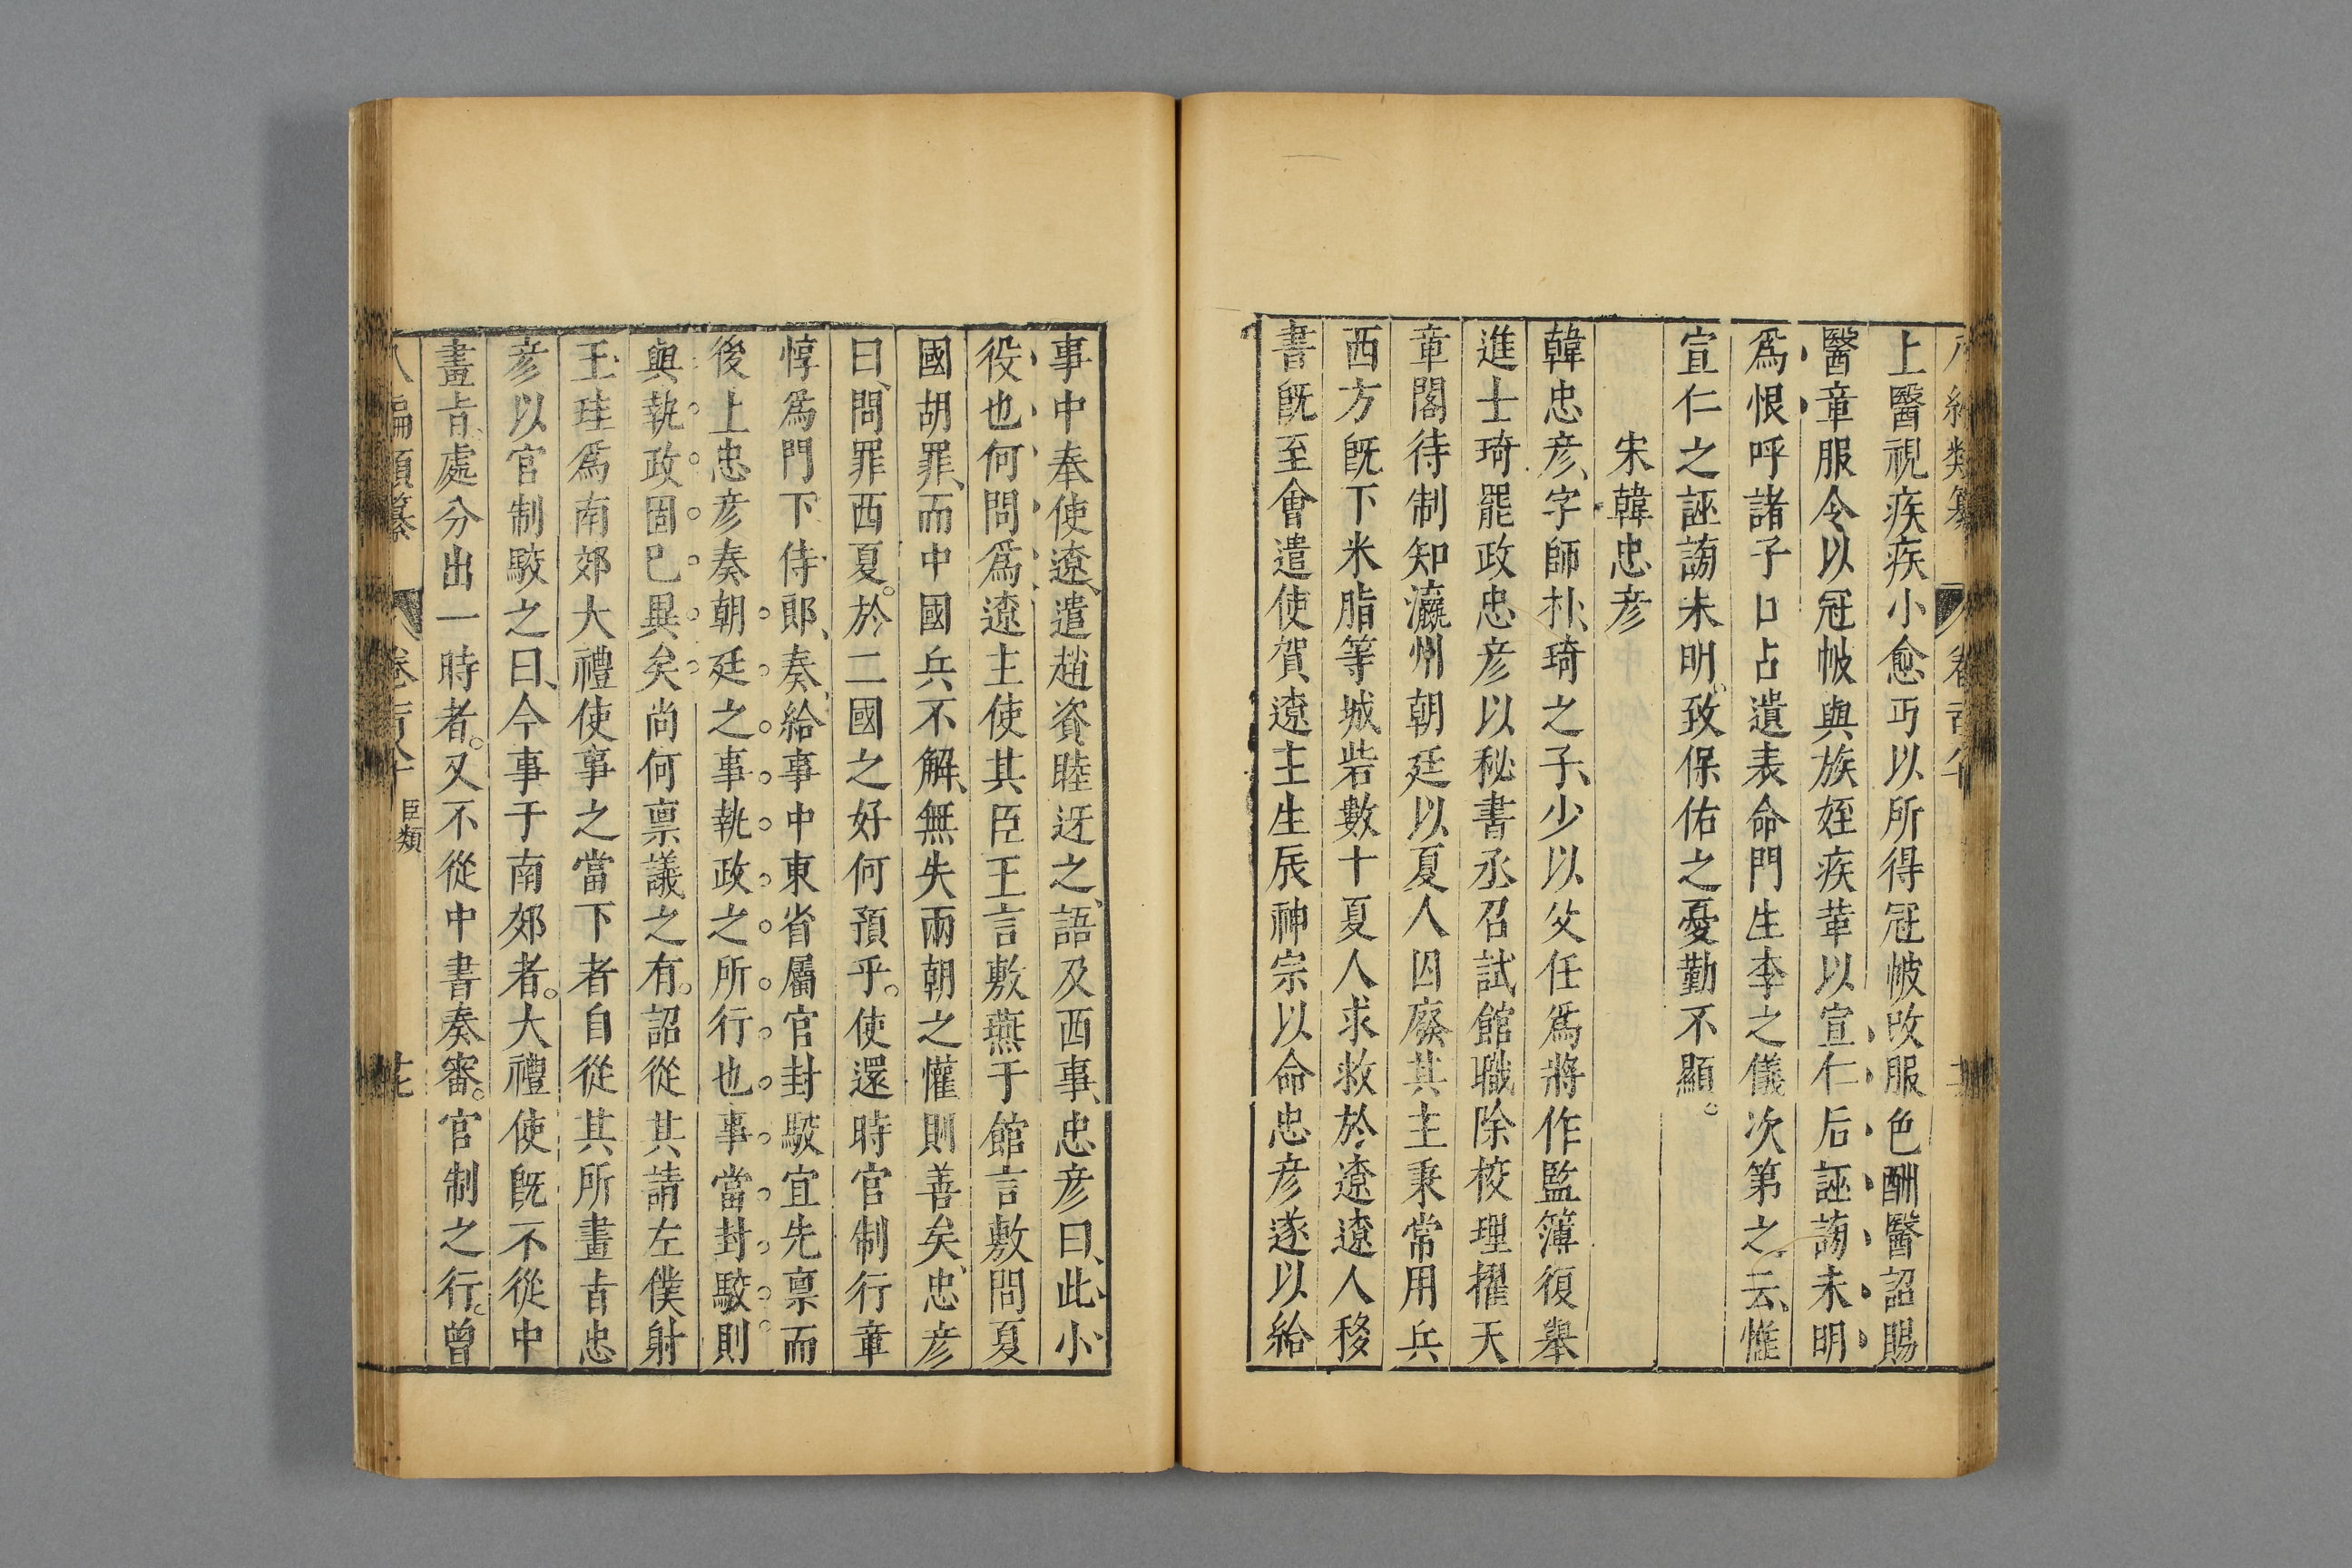 上醫視疾疾小愈丐以所得冠帔改服色酬醫詔賜
醫章服令以冠帔與族姪疾革以宣仁后誣謗未明
爲恨呼諸子口占遺表命門生李之儀次第之云惟
宣仁之誣謗未明致保佑之憂勤不顯。
宋韓忠彦
韓忠彦、字師朴、琦之子、少以父任爲將作監簿復舉
進士琦罷政忠彦以秘書丞召試館職除校理擢天
章閣待制知瀛州朝廷以夏人囚廢其主秉常用兵
西方旣下米脂等城砦數十夏人求救於遼遼人移
書旣至會遣使賀遼主生辰神宗以命忠彦遂以給
事中奉使遼、遣趙資睦迓之、語及西事、忠彦曰、此小
役也何問爲遼主使其臣王言敷燕于館言敷問夏
國胡罪、而中國兵不解、無失兩朝之懽則善矣、忠彦
曰、問罪西夏。於二國之好何預乎。使還時官制行章
惇爲門下侍郎、奏給事中東省屬官封駮宜先禀而
後上忠彦奏朝廷之事執政之所行也事當封駮則
與執政固已異矣尚何禀議之有。詔從其請左僕射
王珪爲南郊大禮使事之當下者自從其所畫㫖忠
彦以官制駮之曰、今事于南郊者。大禮使旣不從中
畫㫖、處分出一時者。又不從中書奏審。官制之行。曾
編類纂 臣類